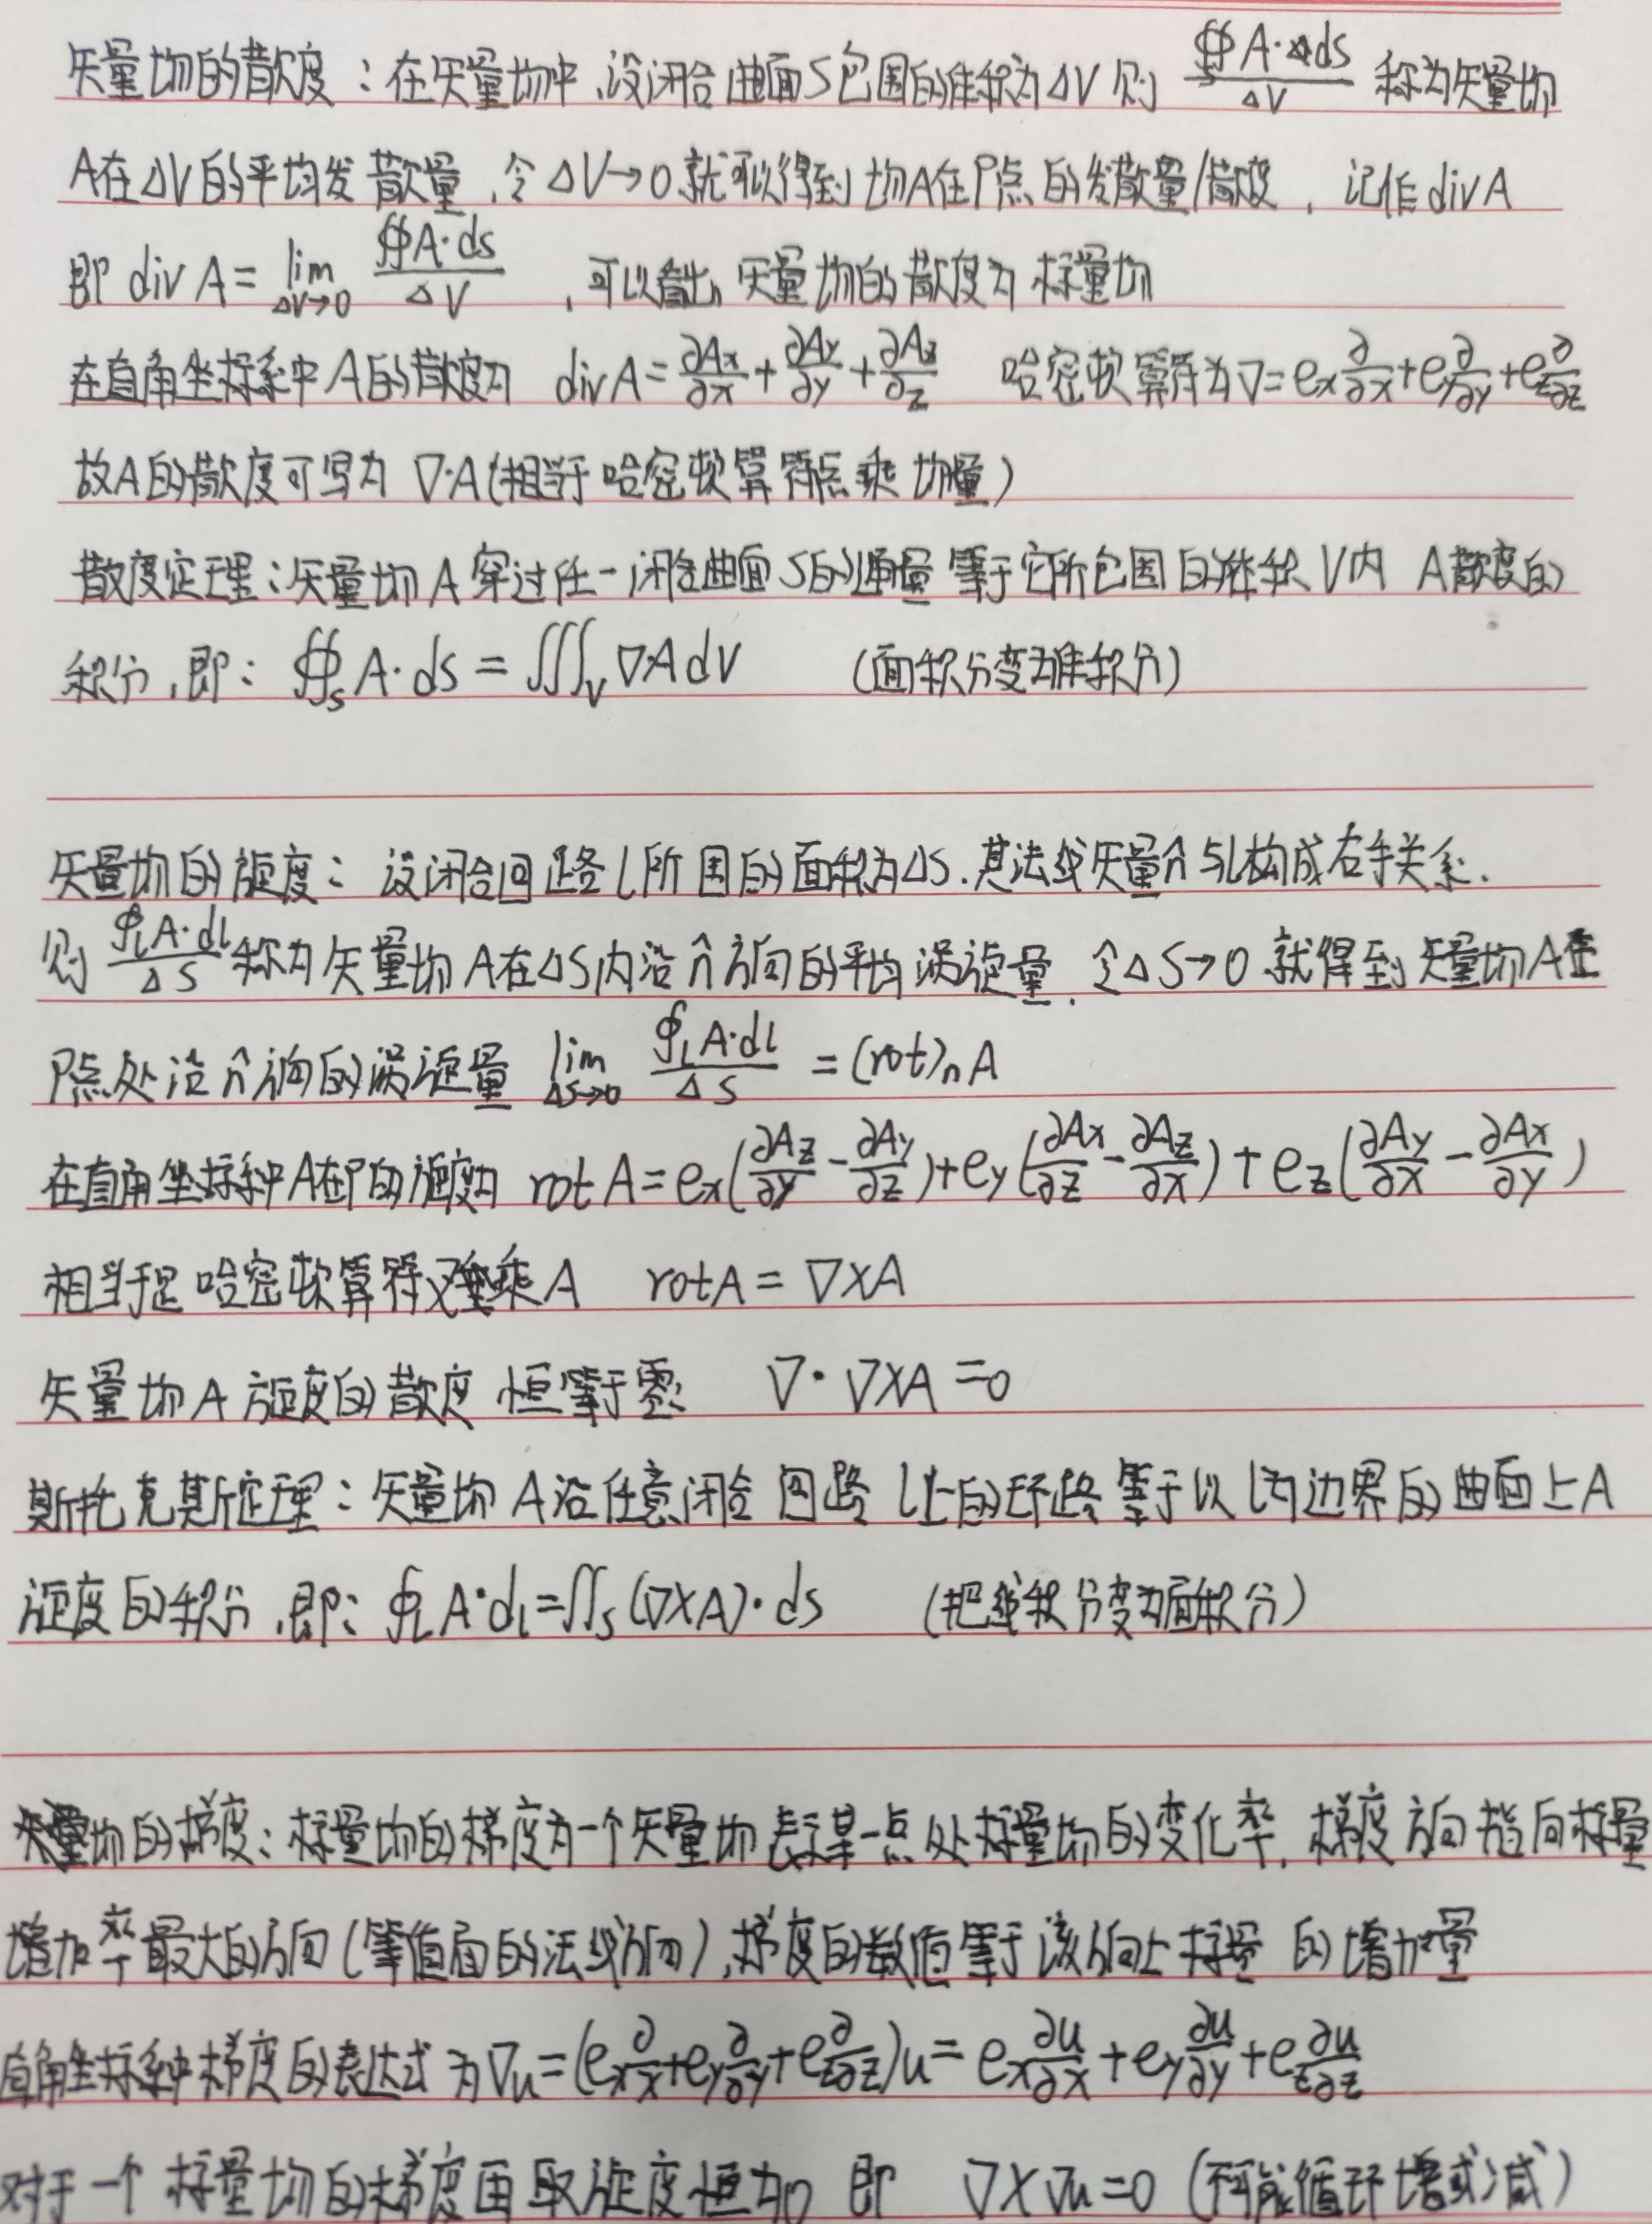 矢量场的散度：在矢量场中,设闭合曲面S包围的体积为ΔV 则 ∯ₛA·ds/ΔV 称为矢量场
A在ΔV的平均发散量,令ΔV→0就可以得到场A在P点的发散量/散度，记作divA
即 div A = lim ΔV→0 ∯A·ds/ΔV ,可以看出,矢量场的散度为标量场
在直角坐标系中A的散度为 divA = ∂Ax/∂x + ∂Ay/∂y + ∂Az/∂z 哈密顿算符为∇=ex ∂/∂x + ey ∂/∂y + ez ∂/∂z
故A的散度可写为 ∇·A(相当于哈密顿算符点乘场量)
散度定理：矢量场A穿过任一闭合曲面S的通量等于它所包围的体积V内 A散度的
积分,即： ∯ₛ A·ds = ∭ᵥ ∇·A dV (面积分变为体积分)
矢量场的旋度： 设闭合回路l所围的面积为ΔS.其法线矢量n̂与l构成右手关系.
则 ∮ₗA·dl/ΔS 称为矢量场A在ΔS内沿n̂方向的平均涡旋量,令ΔS→0就得到矢量场A在
P点处沿n̂方向的涡旋量 lim ΔS→0 ∮ₗA·dl/ΔS = (rot)ₙA
在直角坐标系中A在P的旋度为 rot A = ex(∂Az/∂y - ∂Ay/∂z) + ey(∂Ax/∂z - ∂Az/∂x) + ez(∂Ay/∂x - ∂Ax/∂y)
相当于是哈密顿算符叉乘A rotA = ∇×A
矢量场A旋度的散度恒等于零 ∇·∇×A = 0
斯托克斯定理：矢量场A沿任意闭合回路l上的环路等于以l为边界的曲面上A
旋度的积分,即： ∮ₗ A·dl = ∬ₛ (∇×A)·ds (把线积分变为面积分)
场的梯度：标量场的梯度为一个矢量场表示某一点处标量场的变化率,梯度方向指向标量
增加率最大的方向(等值面的法线方向),梯度的数值等于该方向上标量的增加量
直角坐标系中梯度的表达式为∇u = (ex ∂/∂x + ey ∂/∂y + ez ∂/∂z)u = ex ∂u/∂x + ey ∂u/∂y + ez ∂u/∂z
对于一个标量场的梯度再取旋度恒为0 即 ∇×∇u = 0 (不可能循环增或减)